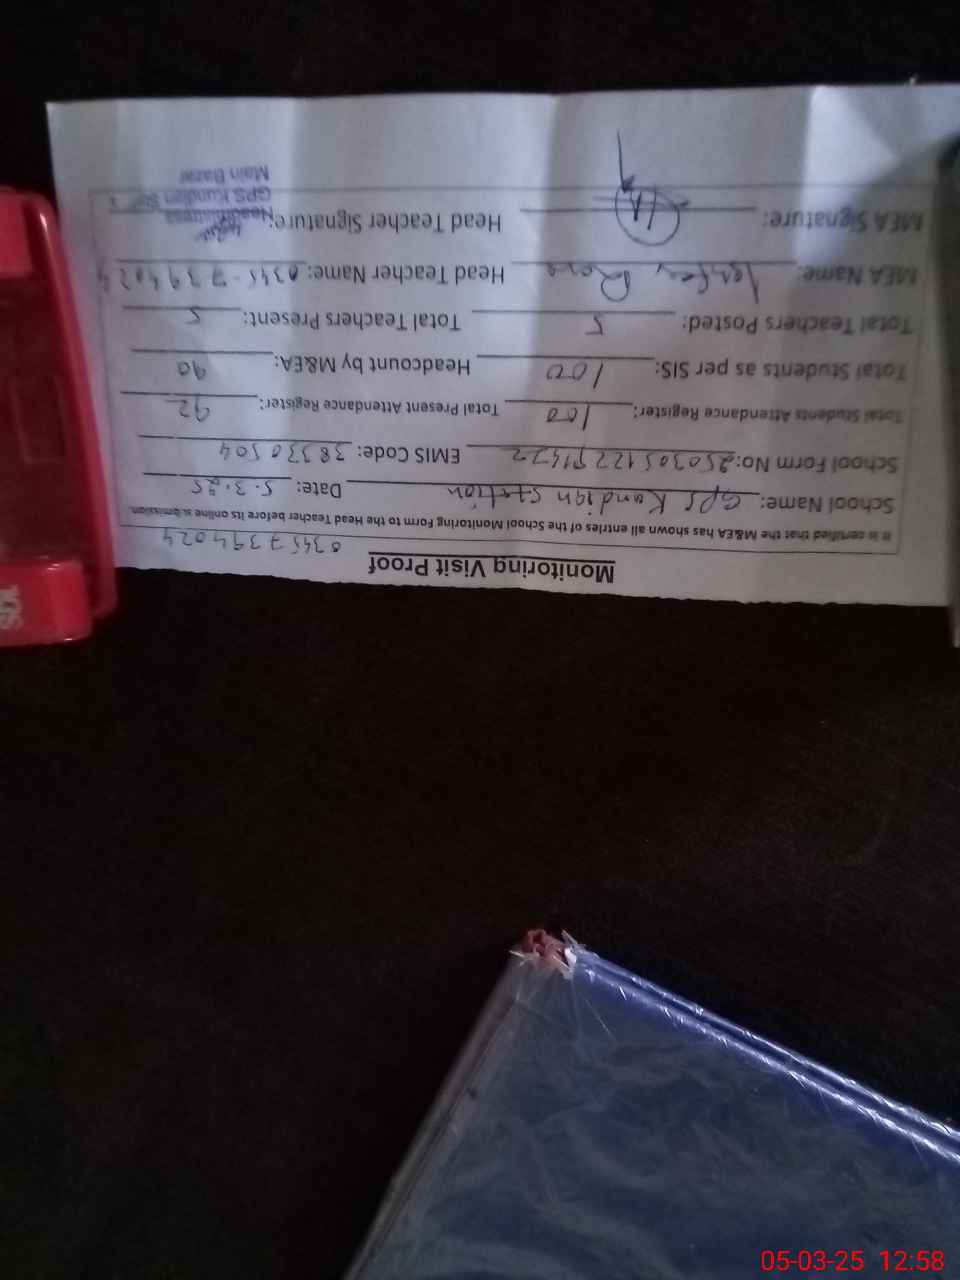 Monitoring Visit Proof
03457394024
It is certified that the M&EA has shown all entries of the School Monitoring Form to the Head Teacher before its online submission.
School Name: GPS Kundian station Date: 5.3.25
School Form No: EMIS Code: 38330504
Total Students Attendance Register: 100 Total Present Attendance Register: 92
Total Students as per SIS: 100 Headcount by M&EA: 90
Total Teachers Posted: 5 Total Teachers Present: 5
MEA Name: Head Teacher Name: 0345-7394024
MEA Signature: Head Teacher Signature:
Headmistress
GPS Kundian
Main Bazar
05-03-25 12:58